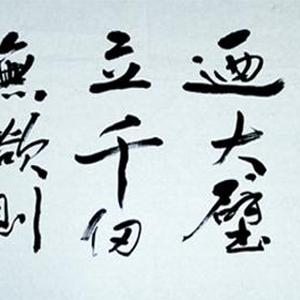 迺大壁
立千仞
無欲則